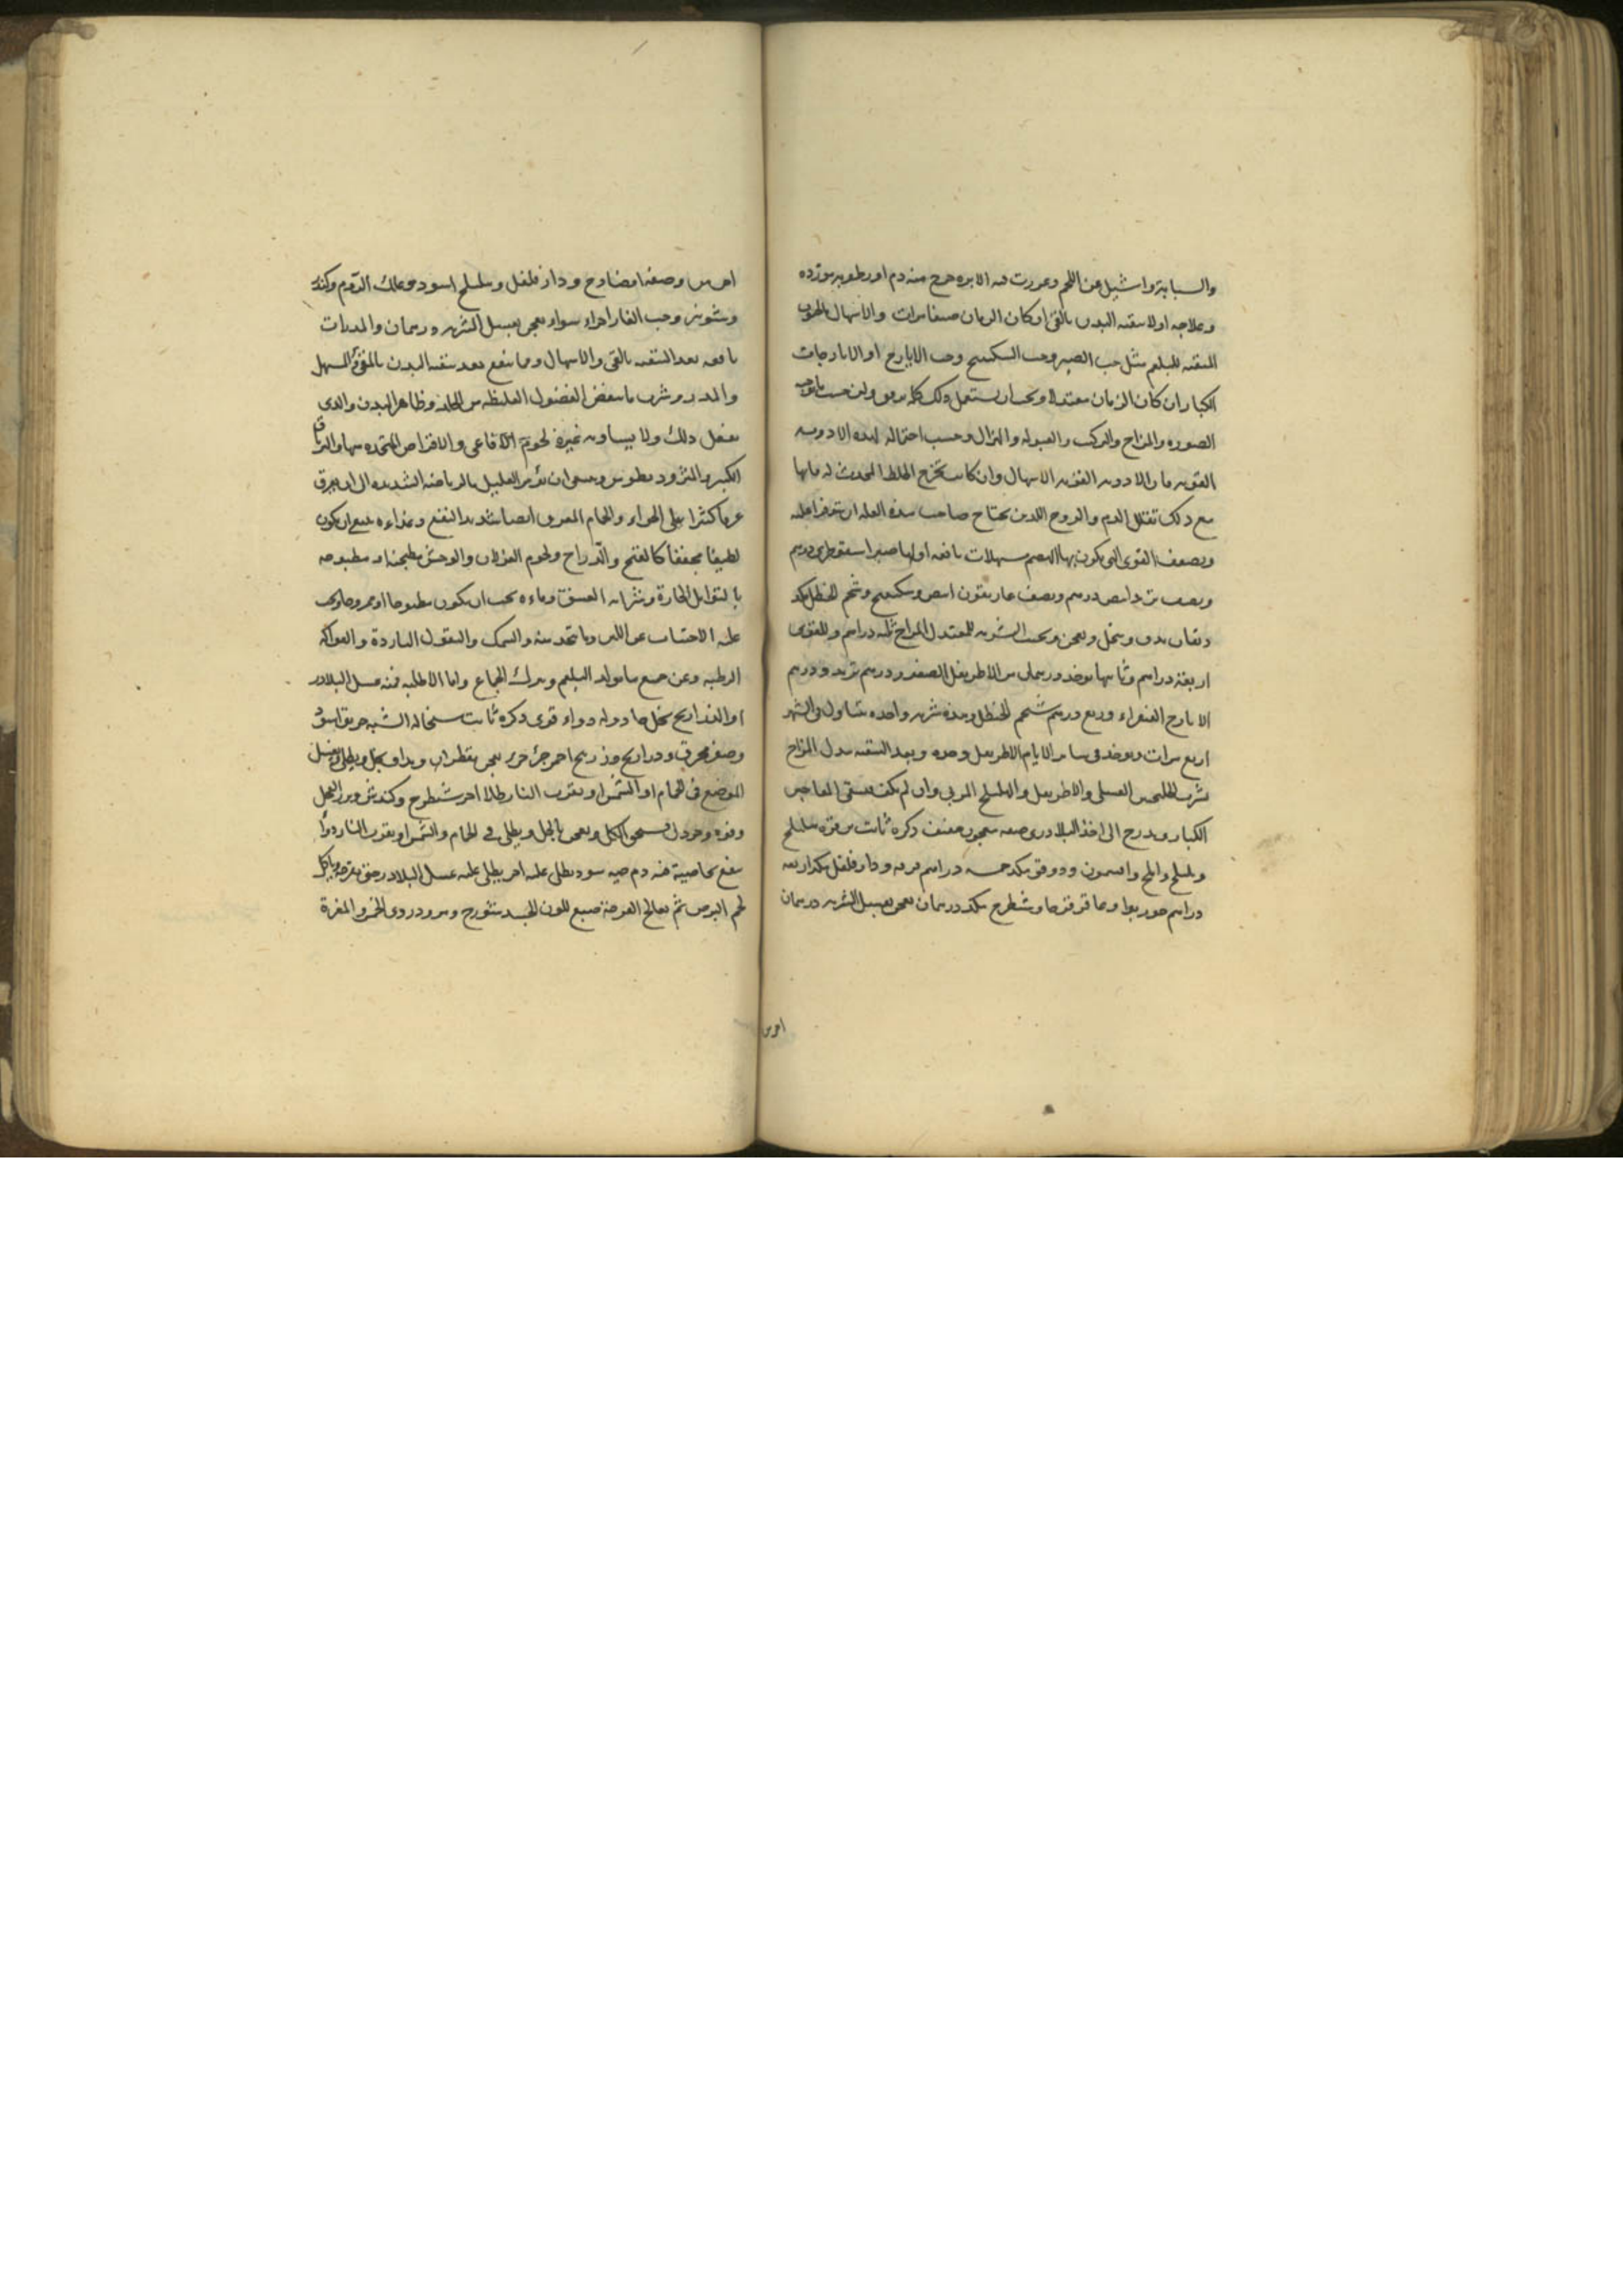 والسبابة واشيل عن اللحم وغررت فيه الابرة خرج منه دم او رطوبة موردة
وعلاجه اولا بتنقية البدن بالقئ ان كان الزمان صيفا مرات والاسهال بالحبوب
المنقية للبلغم مثل حب الصبر وحب السكبينج وحب الايارج او الايارجات
الكبار ان كان الزمان معتدلا ويجب ان يستعمل ذلك كله برفق ولين حسب ما توجبه
الصورة والمزاج والتركيب والعبولة والهزال وحسب احتماله لهذه الادوية
القوية فان الادوية القوية الاسهال وان كانت تخرج الخلط المحدث له فانها
مع ذلك تقلل الدم والروح اللذين يحتاج صاحب هذه العلة ان
ويضعف القوى التي يكون بها الهضم مسهلات نافعة اولها صبر اسقوطرى درهم
ونصف تربد ابيض درهم ونصف غاريقون ابيض وسكبينج وشحم الحنظل مكد
دنقان يدق وينخل ويعجن ويحبب الشربة للمعتدل المزاج ثلثة دراهم وللقوى
اربعة دراهم وثانيها يوخذ درهمان من الاطريفل الصغير ودرهم تربد ودرهم
الايارج الفيقراء وربع درهم شحم الحنظل وهذه شربة واحدة يتناول في الشهر
اربع مرات ويوخذ في سائر الايام الاطريفل وحده وبعد التنقية يبدل المزاج
بشرب الجلنجبين العسلى والاطريفل والهليلج المربى وان لم يكف يسقى المعاجين
الكبار ويدرج الى اخذ البلادرى صفة معجون ذكره ثابت بن قرة هليلج
وبليلج واملج وافتيمون ودوقو مكد خمسة دراهم دار فلفل مكد اربعة
دراهم جوزبوا وعاقرقرحا وشيطرج مكد درهمان يعجن بعسل الشربة درهمان
اخرى
اخرى وصفة ايضا وج ودار فلفل وهليلج اسود وعلك الروم وكندر
وشونيز وحب الغار اجزاء سواء يعجن بعسل الشربة درهمان والمدرات
نافعة بعد التنقية بالقئ والاسهال ومما ينفع بعد تنقية البدن بالمقئ والمسهل
والمدر وشرب ما ينفض الفضول الغليظة من الجلد وظاهر البدن والذى
يفعل ذلك ولا يساويه غيره لحوم الافاعى والاقراص المتخذة منها والترياق
الكبير والمثروديطوس وينبغى ان يؤمر العليل بالرياضة الشديدة الى ان يعرق
عرقا كثيرا على الهواء والحمام المعرق ايضا شديد النفع وغذاءه ينبغي ان يكون
لطيفا مجففا كالقبج والدراج ولحوم الغزلان والوحش مطجنة او مطبوخة
بالتوابل الحارة وشرابه العتيق وماءه يجب ان يكون مطبوخا ويجب
عليه الاجتناب عن اللبن وما يتخذ منه والسمك والبقول الباردة والفواكه
الرطبة وعن جميع ما يولد البلغم ويترك الجماع واما الاطلية فمنه عسل البلادر
او الذراريح بخل حاد وله دواء قوى ذكره ثابت سحالة الشبه خربق اسود
وصفر محرق وذراريح وزرنيخ احمر جزء جزء يعجن بقطران ويداف بخل ويطلى ويغسل
الموضع في الحمام او الشمس او بقرب النار طلاء اخر شيطرج وكندش وبزر الفجل
وفوه وخردل يسحق الكل ويعجن بالخل ويطلى في الحمام والشمس او بقرب النار دواء
ينفع بخاصية فيه دم حية سود يطلى عليه اخر يطلى عليه عسل البلادر حتى يقرحه وياكل
لحم البرص ثم يعالج القرحة صبغ للون الجسد ودردى الخمر والمغرة